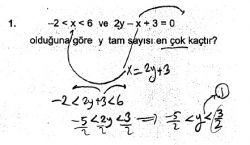 1. -2 < x < 6 ve 2y - x + 3 = 0
olduğuna göre y tam sayısı en çok kaçtır?
x = 2y+3
-2 < 2y+3 < 6
-5/2 < 2y < 3/2 ⟹ -5/2 < y < 3/2
1